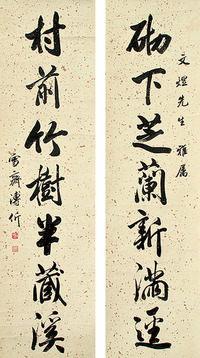 文煜先生 雅屬
砌下芝蘭新滿逕
村前竹樹半藏溪
雪齋溥伒